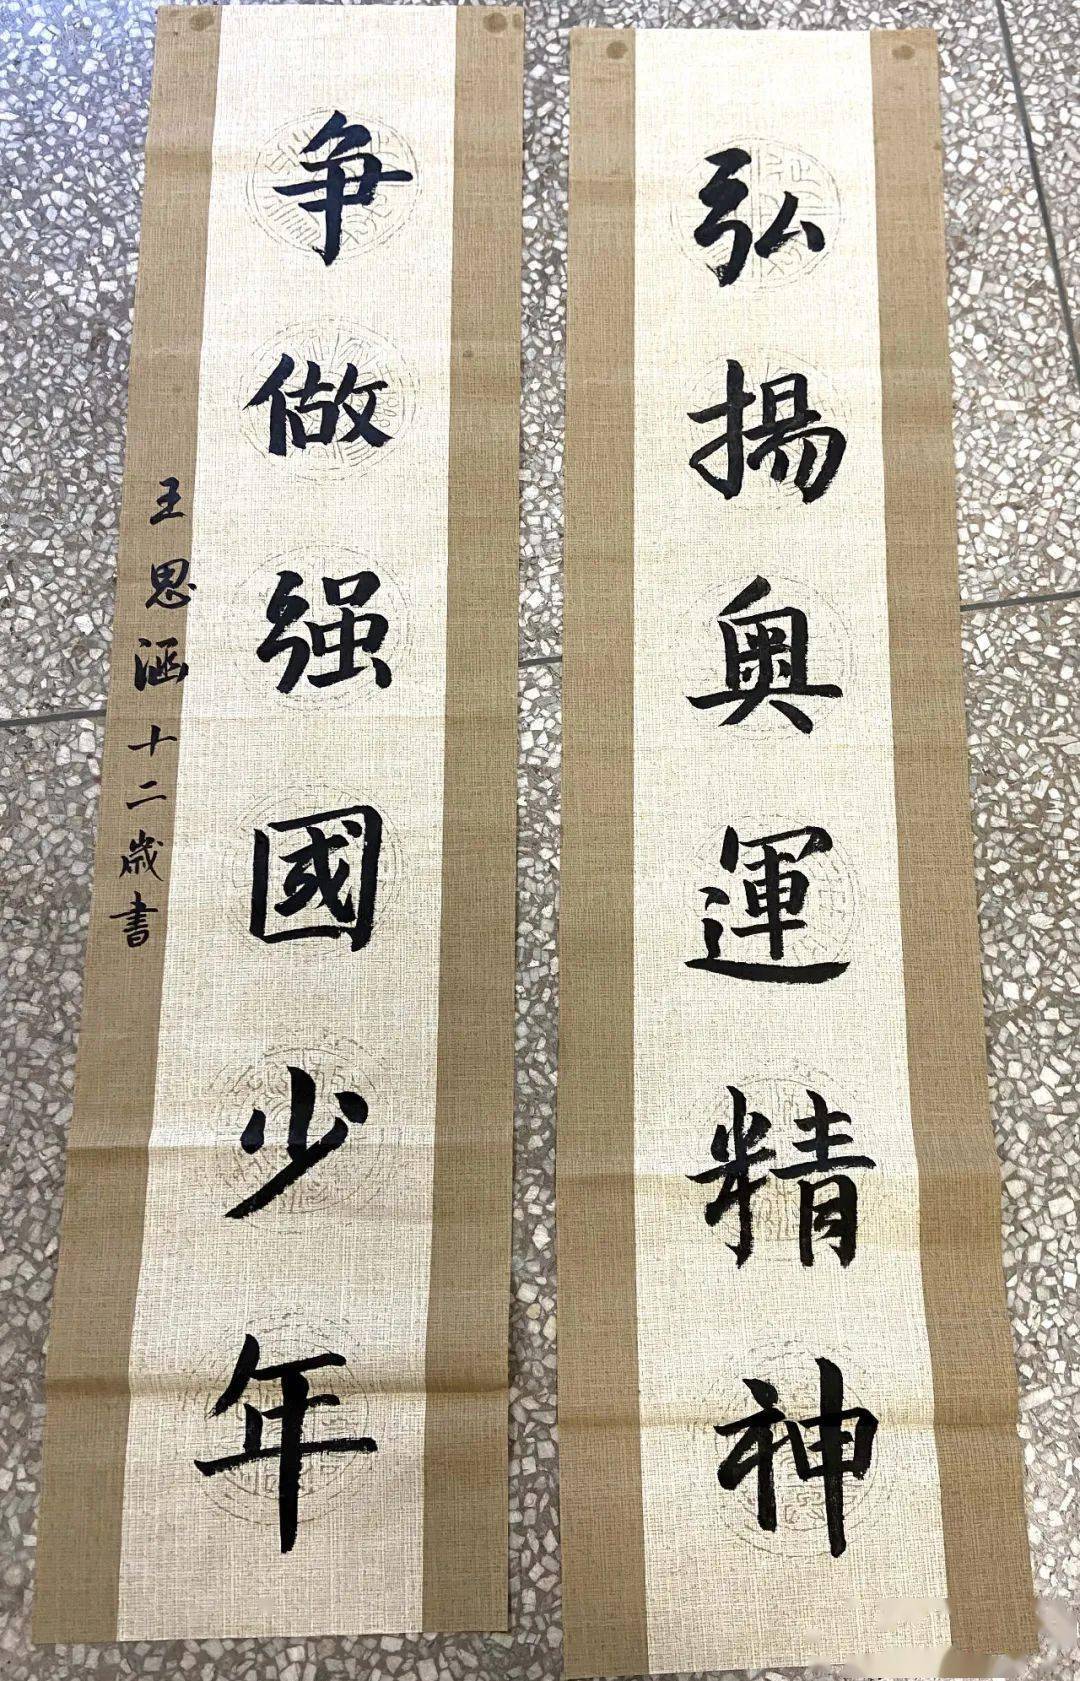 弘揚奥運精神
争做强國少年
王思涵十二歲書